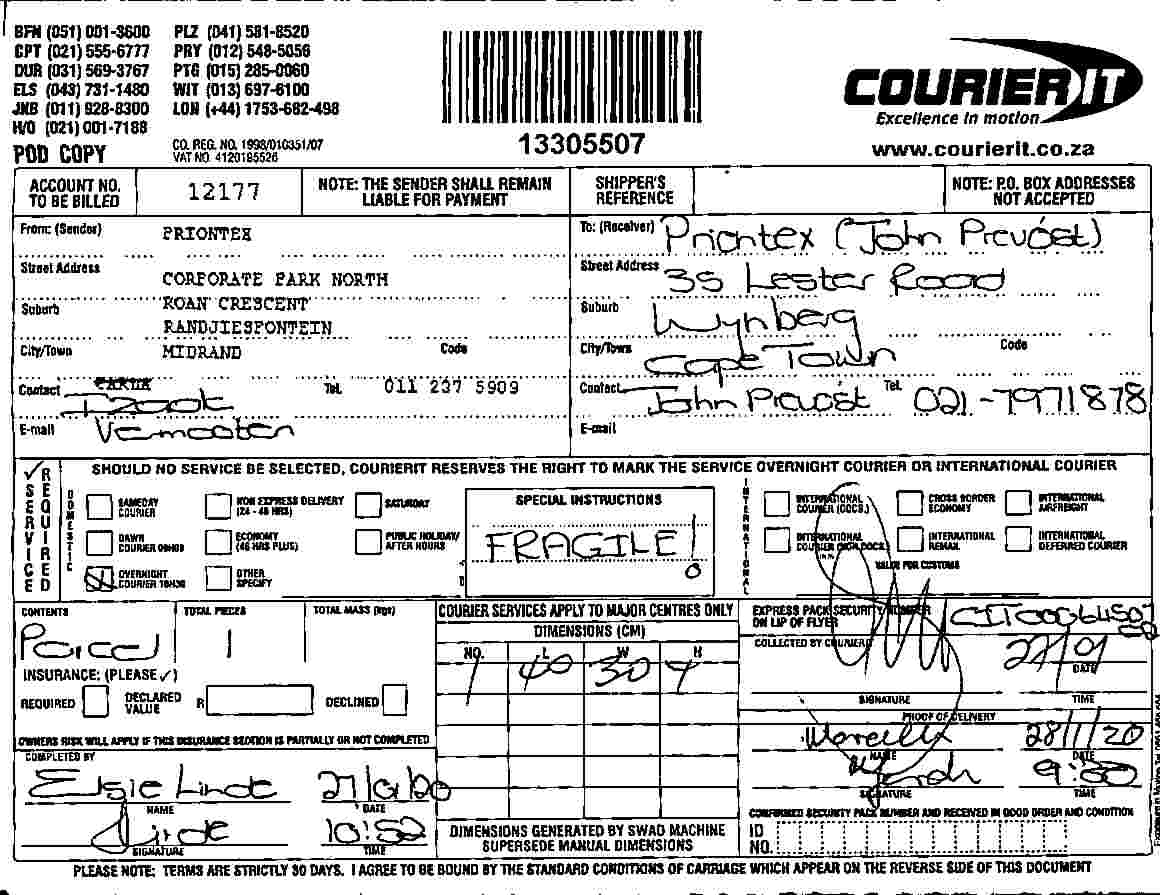 BFN (051) 001-3600 PLZ (041) 581-8520
CPT (021) 555-6777 PRY (012) 548-5056
DUR (031) 569-3767 PTG (015) 285-0060
ELS (043) 731-1480 WIT (013) 697-6100
JNB (011) 928-8300 LON (+44) 1753-682-498
H/O (021) 001-7188
POD COPY
CO. REG. NO. 1998/010351/07
VAT NO. 4120185526
13305507
COURIER IT
Excellence in motion
www.courierit.co.za
ACCOUNT NO. TO BE BILLED
12177
NOTE: THE SENDER SHALL REMAIN LIABLE FOR PAYMENT
SHIPPER'S REFERENCE
NOTE: P.O. BOX ADDRESSES NOT ACCEPTED
From: (Sender) PRIONTEX
Street Address CORPORATE PARK NORTH
Suburb ROAN CRESCENT
RANDJIESFONTEIN
City/Town MIDRAND Code
Contact Izaak Tel. 011 237 5909
E-mail Vermooten
To: (Receiver) Priontex (John Prevóst)
Street Address 35 Lester Road
Suburb Wynberg
City/Town Cape Town Code
Contact John Prevóst Tel. 021-7971878
E-mail
SERVICE REQUIRED
SHOULD NO SERVICE BE SELECTED, COURIERIT RESERVES THE RIGHT TO MARK THE SERVICE OVERNIGHT COURIER OR INTERNATIONAL COURIER
DOMESTIC
SAMEDAY COURIER
NON EXPRESS DELIVERY (24 - 48 HRS)
SATURDAY
DAWN COURIER 09H00
ECONOMY (48 HRS PLUS)
PUBLIC HOLIDAY/ AFTER HOURS
OVERNIGHT COURIER 10H30
OTHER SPECIFY
SPECIAL INSTRUCTIONS
FRAGILE!
INTERNATIONAL
INTERNATIONAL COURIER (DOCS.)
CROSS BORDER ECONOMY
INTERNATIONAL AIRFREIGHT
INTERNATIONAL COURIER (NON DOCS.)
INTERNATIONAL REMAIL
INTERNATIONAL DEFERRED COURIER
VALUE FOR CUSTOMS
CONTENTS TOTAL PIECES TOTAL MASS (kgs)
Parcel 1
INSURANCE: (PLEASE ✓)
REQUIRED DECLARED VALUE R DECLINED
OWNERS RISK WILL APPLY IF THIS INSURANCE SECTION IS PARTIALLY OR NOT COMPLETED
COMPLETED BY
Elsie Linde 27/01/20
NAME DATE
Linde 10:52
SIGNATURE TIME
COURIER SERVICES APPLY TO MAJOR CENTRES ONLY
DIMENSIONS (CM)
NO. L W H
1 40 30 4
DIMENSIONS GENERATED BY SWAD MACHINE SUPERSEDE MANUAL DIMENSIONS
EXPRESS PACK SECURITY NUMBER ON LIP OF FLYER
COLLECTED BY COURIER
27/01
DATE
SIGNATURE TIME
PROOF OF DELIVERY
28/1/20
NAME DATE
9:00
SIGNATURE TIME
CONFIRMED SECURITY PACK NUMBER AND RECEIVED IN GOOD ORDER AND CONDITION
ID NO.
PLEASE NOTE: TERMS ARE STRICTLY 30 DAYS. I AGREE TO BE BOUND BY THE STANDARD CONDITIONS OF CARRIAGE WHICH APPEAR ON THE REVERSE SIDE OF THIS DOCUMENT